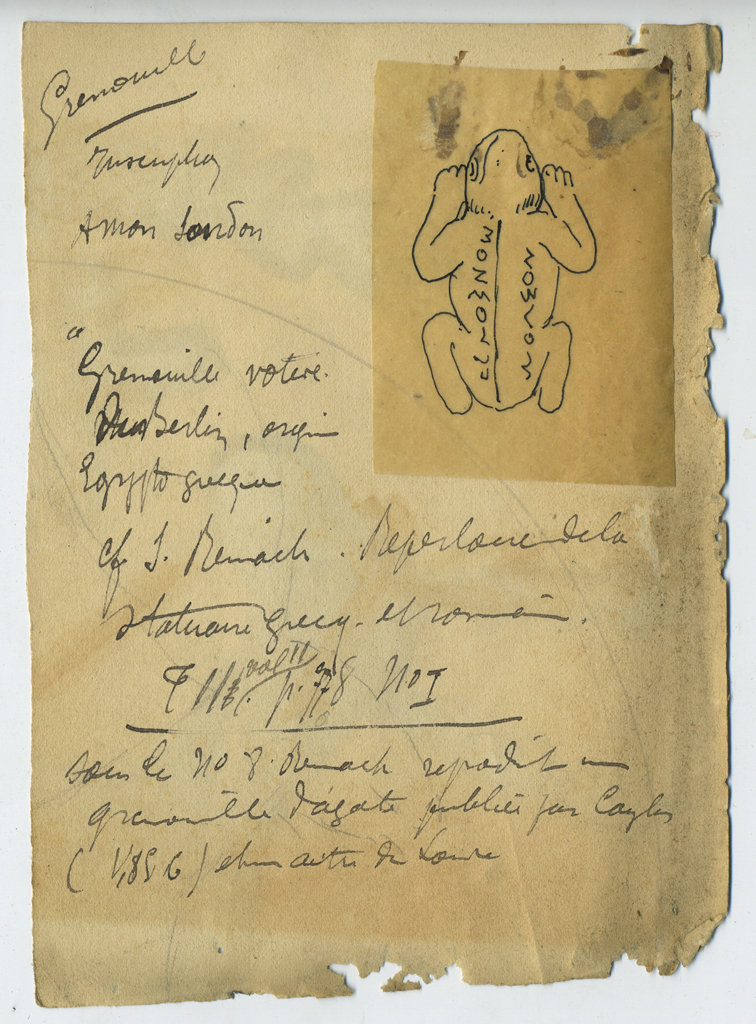 Grenouille
Amon London
"Grenouille votive.
Berlin, origin
Egypto grecque
cf S. Reinach. Repertoire de la
Statuaire grecq. et romain.
vol II p. 778 No I
sous le No 8. Reinach reproduit un
grenouille d'agate publiée par Caylus
(V, 85 6) et un autre du Louvre